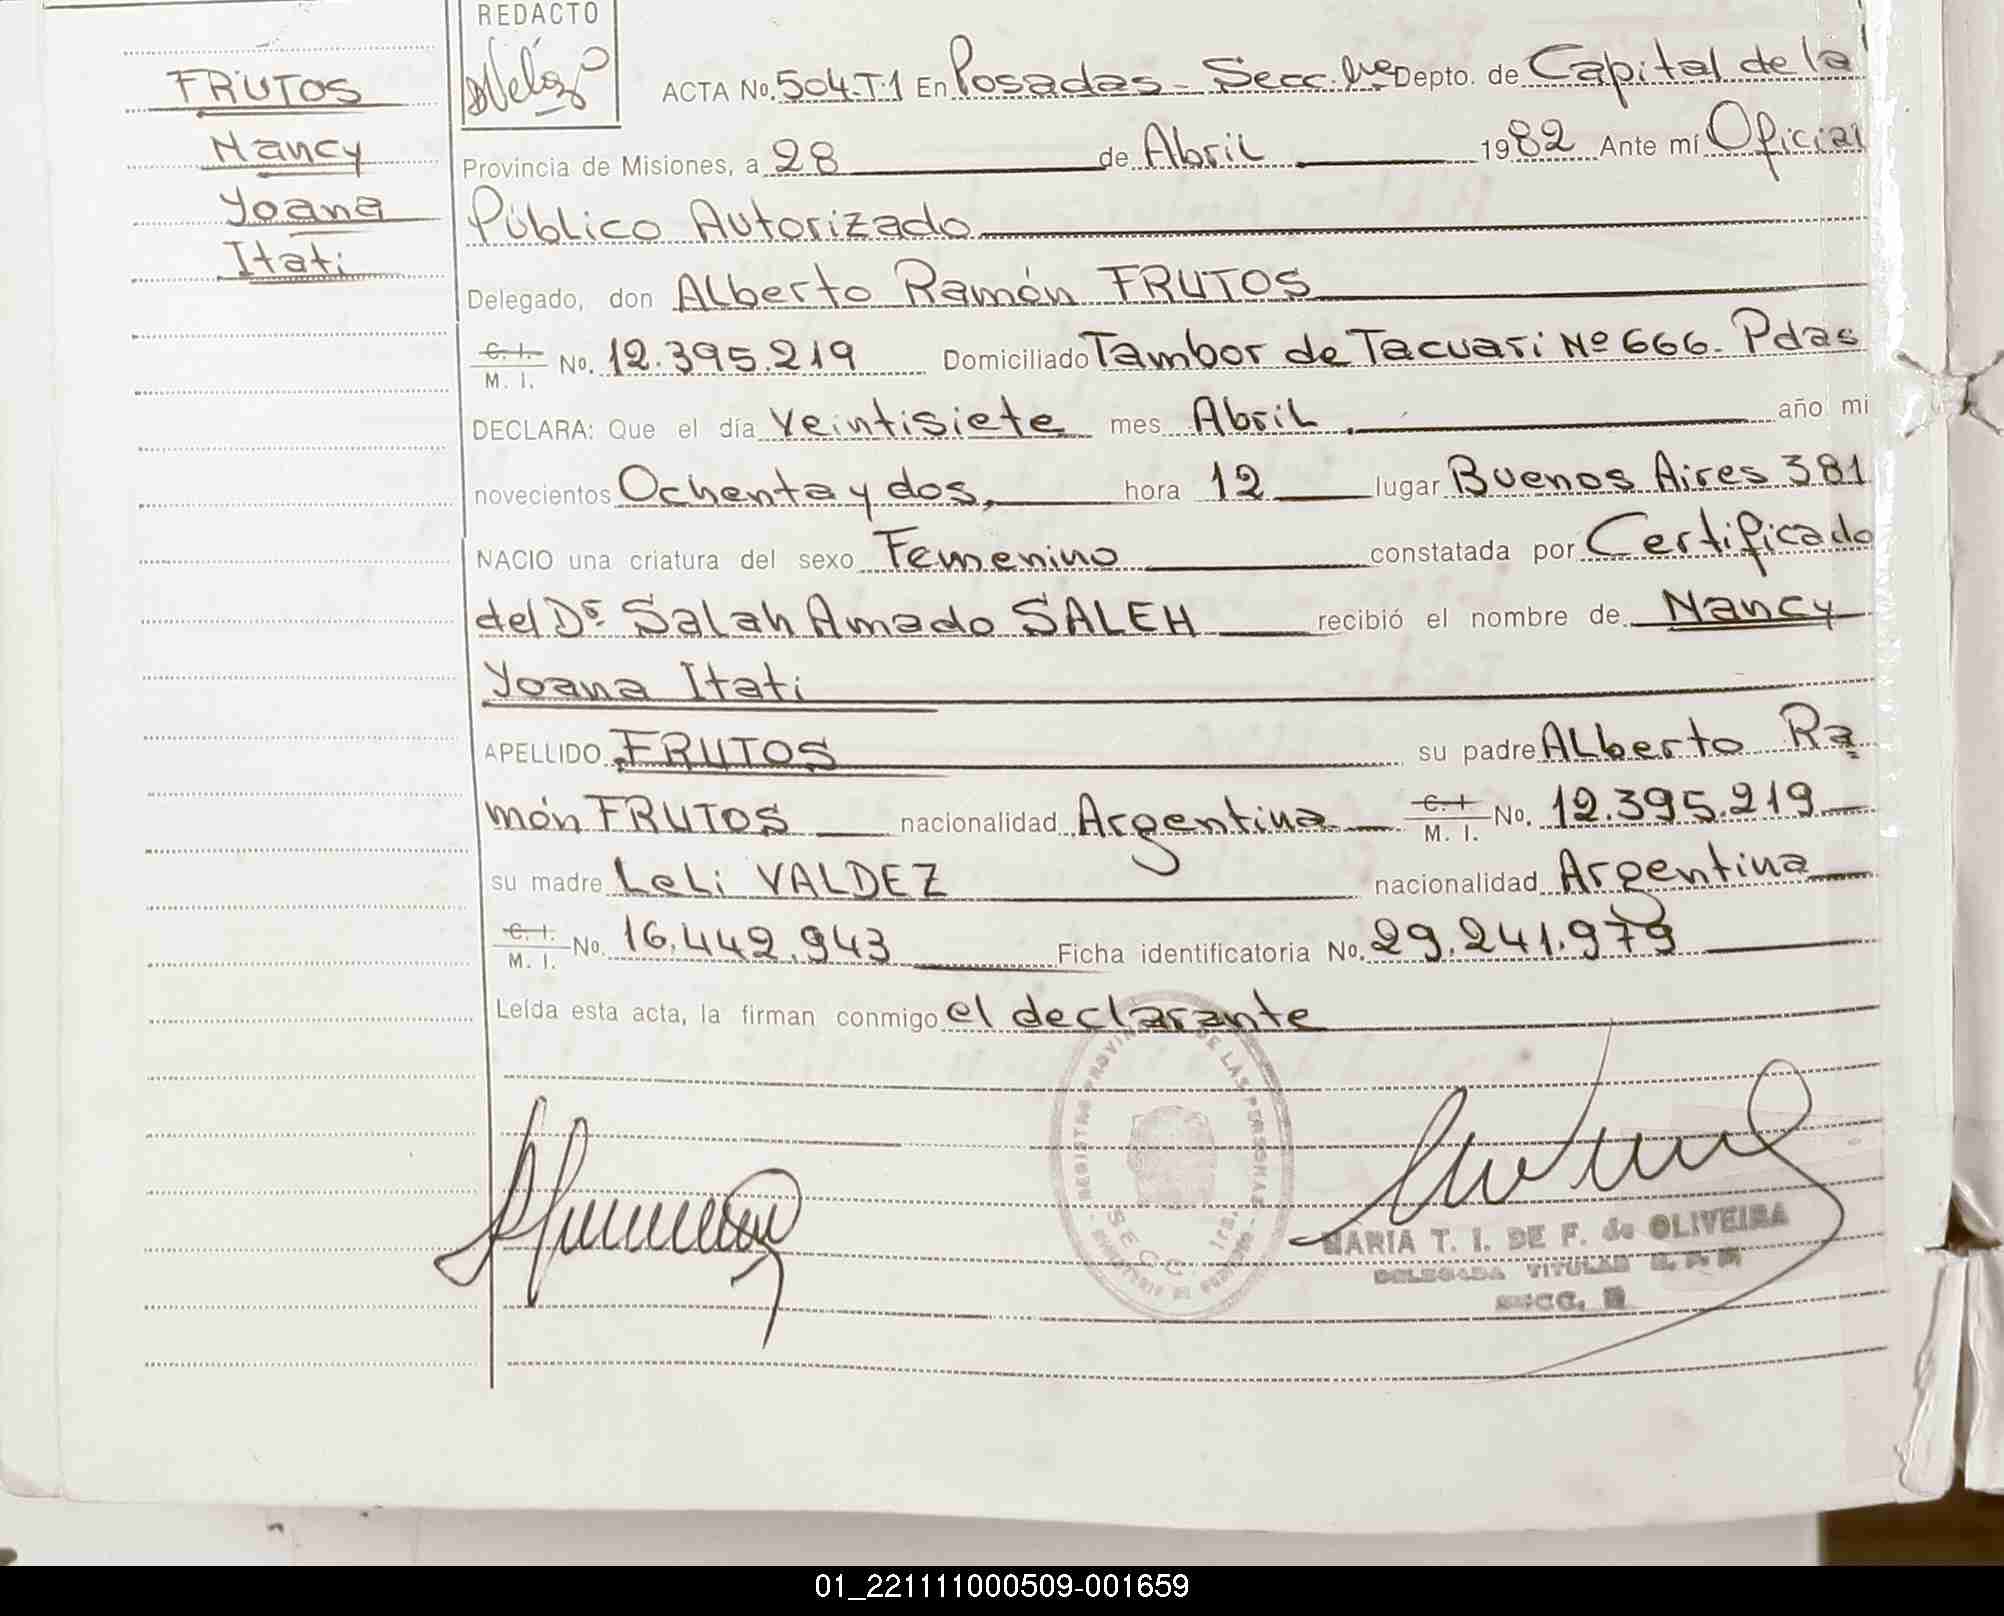 REDACTO
FRUTOS
Nancy
Yoana
Itati
ACTA No. 504.T.1 En Posadas - Secc. Depto. de Capital de la
Provincia de Misiones, a 28 de Abril 1982 Ante mí Oficial
Público Autorizado
Delegado, don Alberto Ramón FRUTOS
C. I. M. I. No. 12.395.219 Domiciliado Tambor de Tacuari Nº 666. Pdas
DECLARA: Que el día veintisiete mes Abril año mi
novecientos Ochenta y dos, hora 12 lugar Buenos Aires 381
NACIO una criatura del sexo Femenino constatada por Certificado
del Dr. Salah Amado SALEH recibió el nombre de Nancy
Yoana Itati
APELLIDO FRUTOS su padre Alberto Ra
món FRUTOS nacionalidad Argentina C. I. M. I. No. 12.395.219
su madre Leli VALDEZ nacionalidad Argentina
C. I. M. I. No. 16.442.943 Ficha identificatoria No. 29.241.979
Leída esta acta, la firman conmigo el declarante
REGISTRO PROVINCIAL DE LAS PERSONAS
SECC. 1ra.
MARIA T. I. DE F. de OLIVEIRA
DELEGADA TITULAR
SECC.
01_221111000509-001659